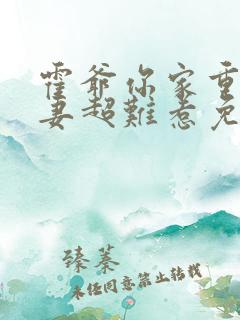 霍爷你家重
妻超難惹免
臻蓁
未经同意禁止转载